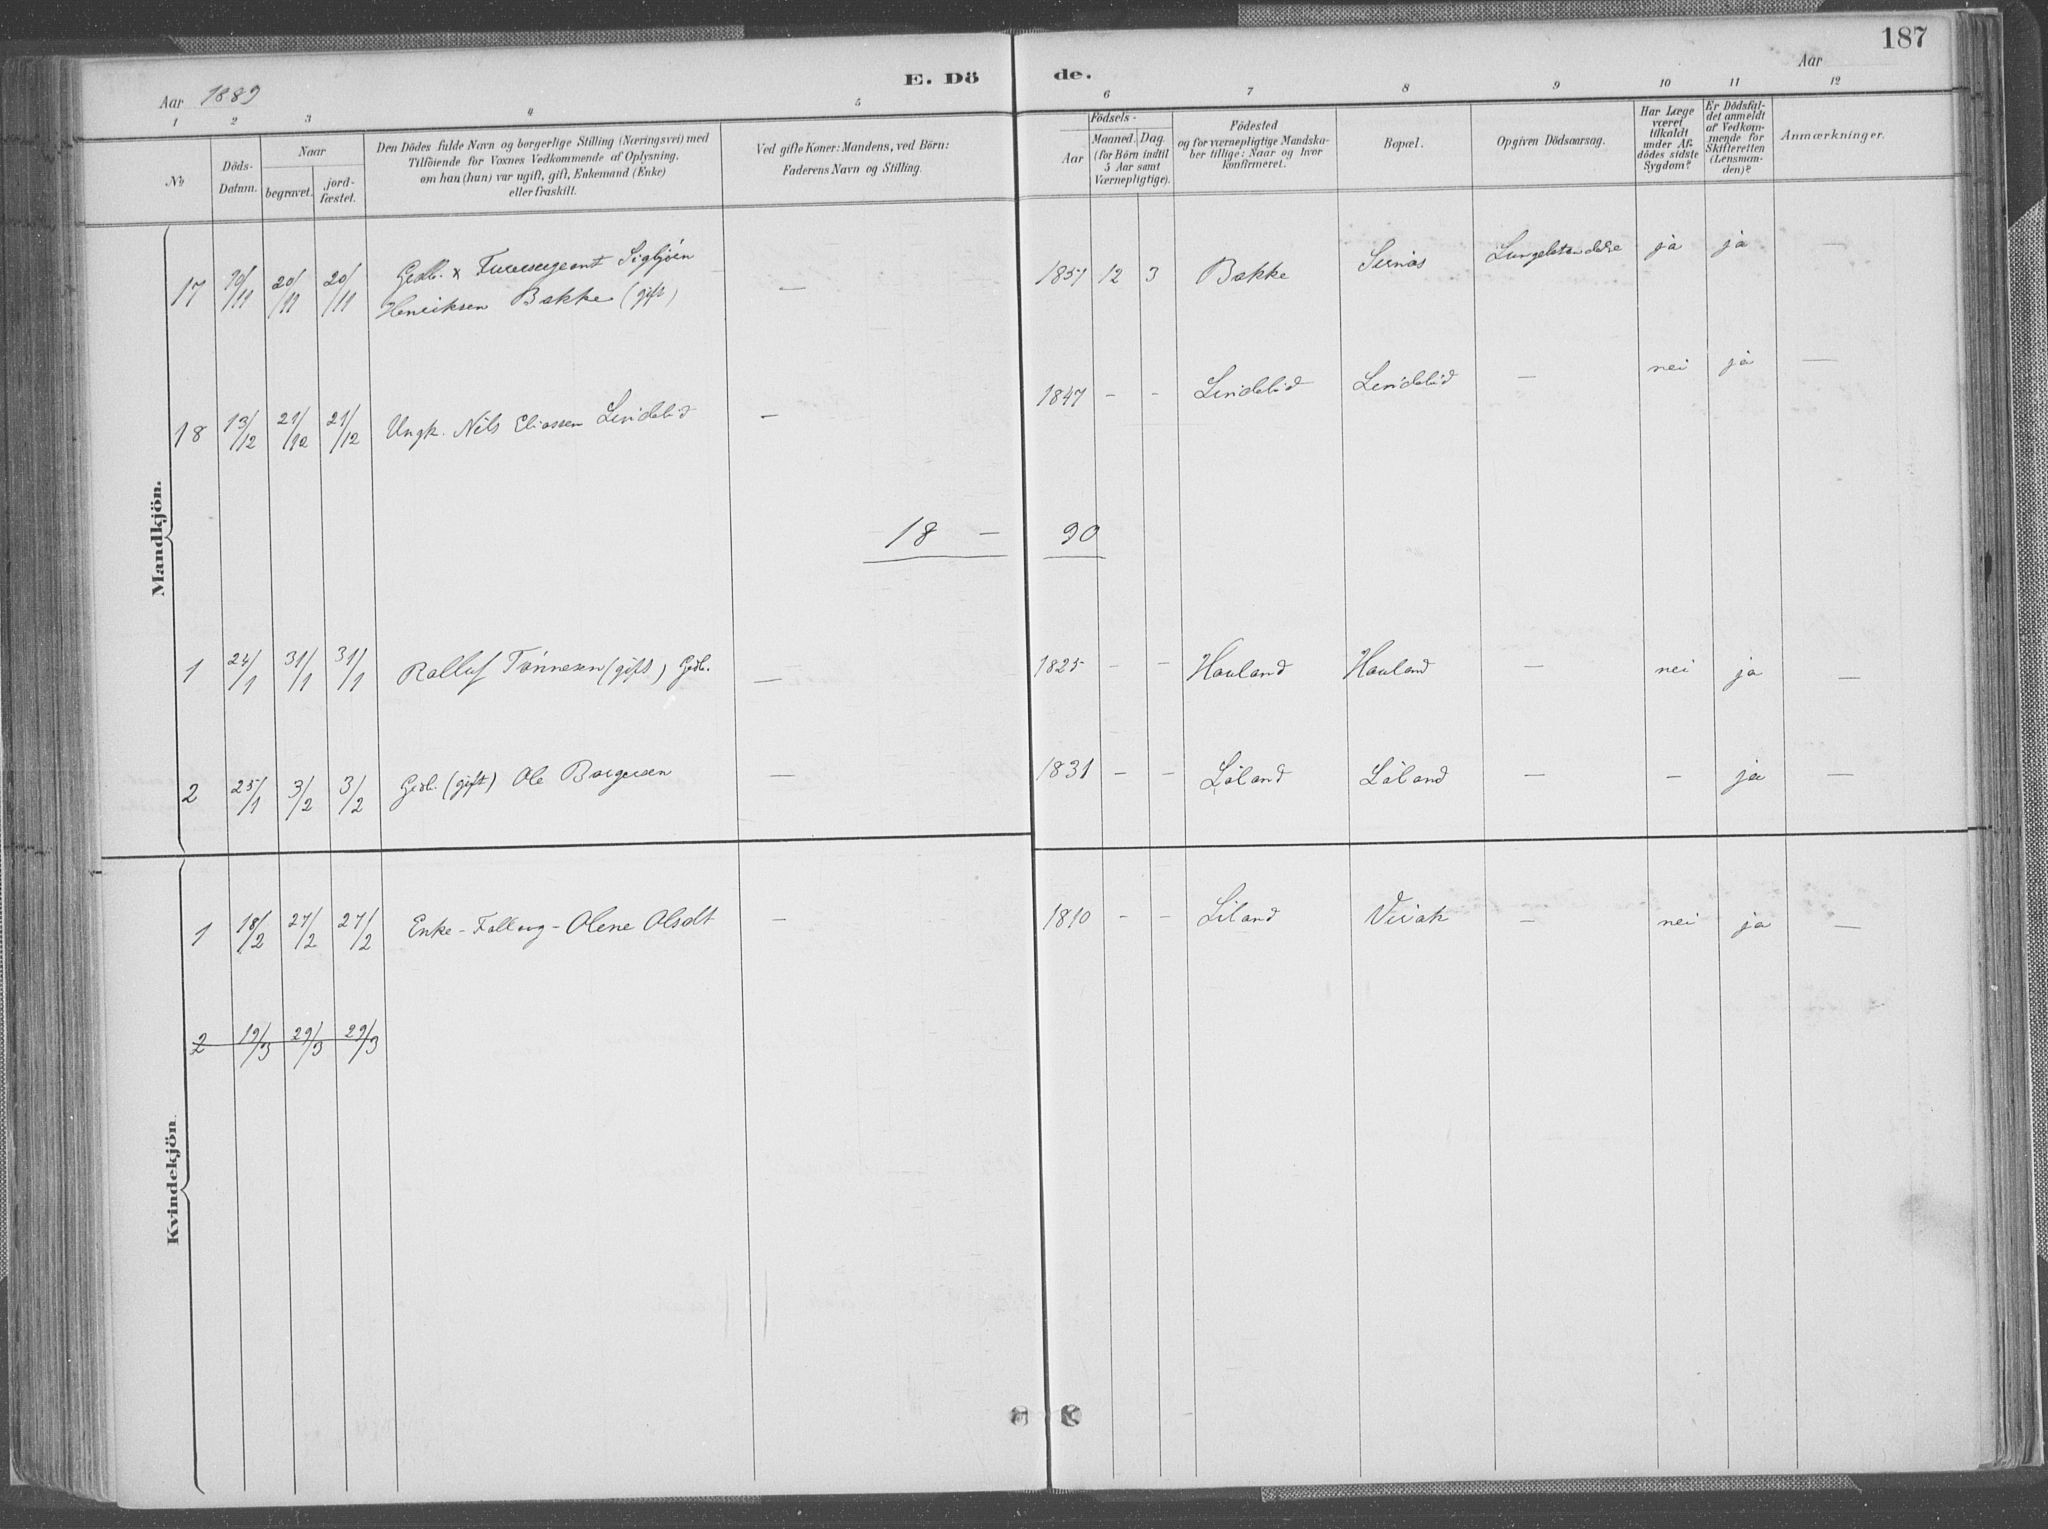 187
E. Dö de.
Aar 1889
Aar
1 2 3 4 5 6 7 8 9 10 11 12
No
Döds-Datum.
Naar
begravet.
jord-fæstet.
Den Dödes fulde Navn og borgerlige Stilling (Næringsvei) med
Tilföiende for Voxnes Vedkommende af Oplysning,
om han (hun) var ugift, gift, Enkemand (Enke)
eller fraskilt.
Ved gifte Koner: Mandens, ved Börn:
Faderens Navn og Stilling.
Födsels-
Aar
Maaned. Dag.
(for Börn indtil
5 Aar samt
Værnepligtige).
Födested
og for værnepligtige Mandska-
ber tillige: Naar og hvor
konfirmeret.
Bopæl.
Opgiven Dödsaarsag.
Har Læge
været
tilkaldt
under Af-
dödes sidste
Sygdom?
Er Dödsfal-
det anmeldt
af Vedkom-
mende for
Skifteretten
(Lensman-
den)?
Anmærkninger.
Mandkjön.
17 10/11 20/11 20/11 Gedb. x Sigbjörn
Henriksen Bakke (gift) — 1857 12 3 Bakke Sirnæs ja ja —
18 13/12 21/12 21/12 Ungk. Nils Eliassen Lindelid — 1847 - - Lindelid Lindelid — nei ja —
18 — 90
1 24/1 31/1 31/1 Rolluf Tönnesen (gift) Gedb. — 1825 - - Houland Houland — nei ja —
2 25/1 3/2 3/2 Gedb. (gift) Ole Borgersen — 1831 - - Löland Löland — — ja —
Kvindekjön
1 18/2 27/2 27/2 Enke - - Olene Olsdt — 1810 - - Liland Virak — nei ja —
2 19/3 29/3 29/3